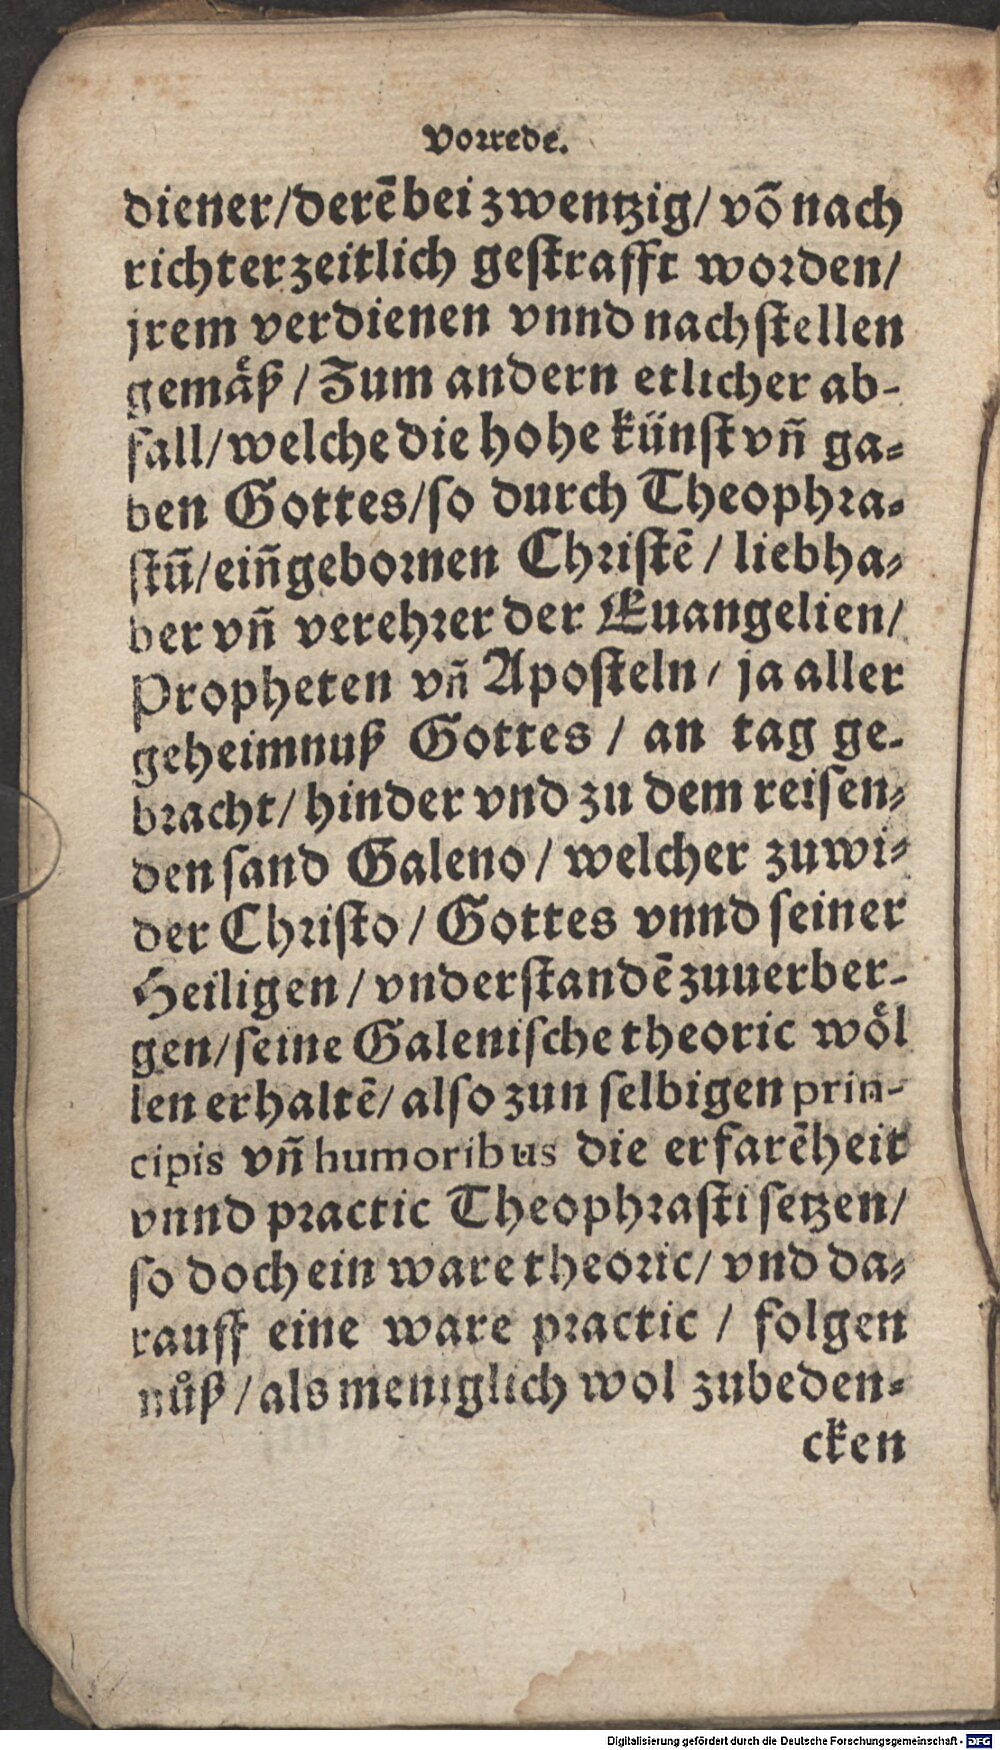 Vorrede.
diener/derē bei zwentzig/ võ nach
richter zeitlich gestrafft worden/
jrem verdienen vnnd nachstellen
gemäß / Zum andern etlicher ab-
fall/welche die hohe künst vñ ga-
ben Gottes/so durch Theophra-
stū/ein̄ gebornen Christē / liebha-
ber vñ verehrer der Euangelien/
Propheten vñ Aposteln/ ja aller
geheimnuß Gottes / an tag ge-
bracht/ hinder vnd zu dem reisen-
den sand Galeno/ welcher zuwi-
der Christo/ Gottes vnnd seiner
Heiligen/ vnderstandē zuuerber-
gen/seine Galenische theoric wöl
len erhaltē/ also zun selbigen prin-
cipis vñ humoribus die erfarēheit
vnnd practic Theophrasti setzen/
so doch ein ware theoric/ vnd da-
rauff eine ware practic / folgen
můß/als meniglich wol zubeden-
cken
Digitalisierung gefördert durch die Deutsche Forschungsgemeinschaft - DFG